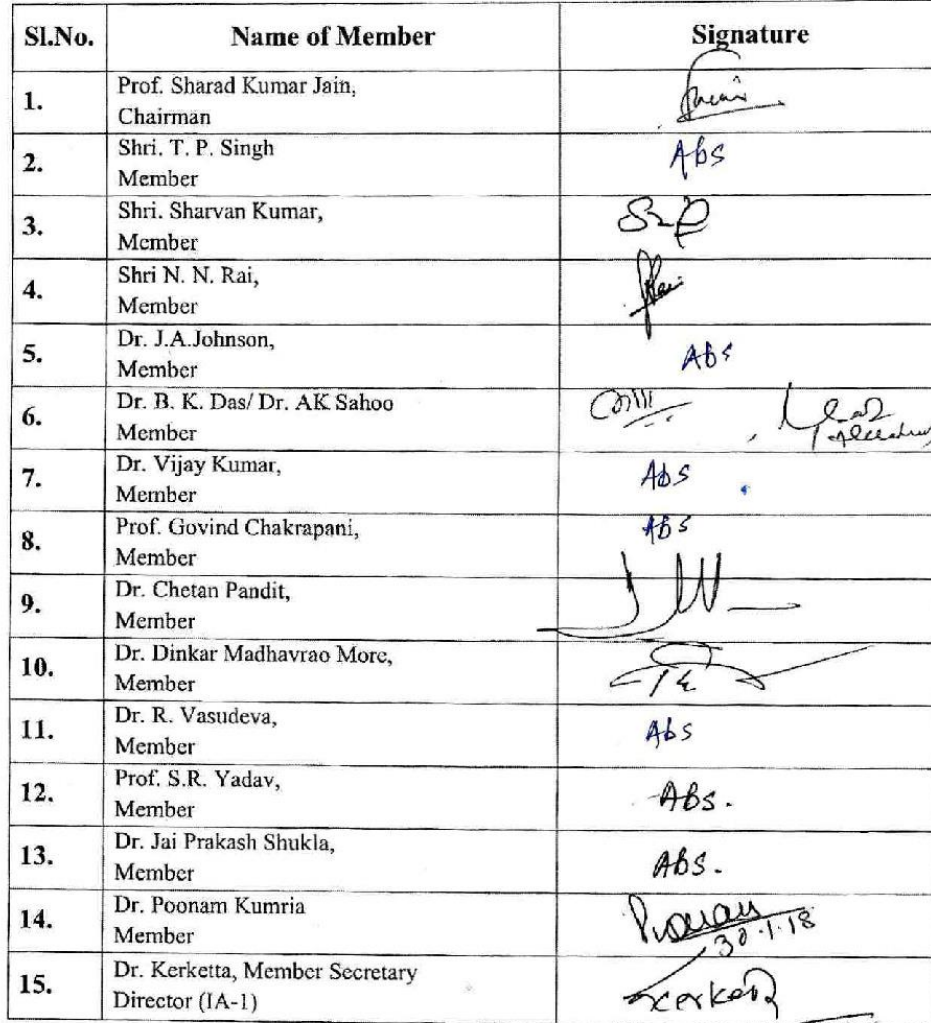 Sl.No. Name of Member Signature
1. Prof. Sharad Kumar Jain,
Chairman
2. Shri. T. P. Singh Abs
Member
3. Shri. Sharvan Kumar,
Member
4. Shri N. N. Rai,
Member
5. Dr. J.A.Johnson, Abs
Member
6. Dr. B. K. Das/ Dr. AK Sahoo
Member
7. Dr. Vijay Kumar, Abs
Member
8. Prof. Govind Chakrapani, Abs
Member
9. Dr. Chetan Pandit,
Member
10. Dr. Dinkar Madhavrao More,
Member
11. Dr. R. Vasudeva, Abs
Member
12. Prof. S.R. Yadav, Abs.
Member
13. Dr. Jai Prakash Shukla, Abs.
Member
14. Dr. Poonam Kumria
Member 30.1.18
15. Dr. Kerketta, Member Secretary
Director (IA-1)